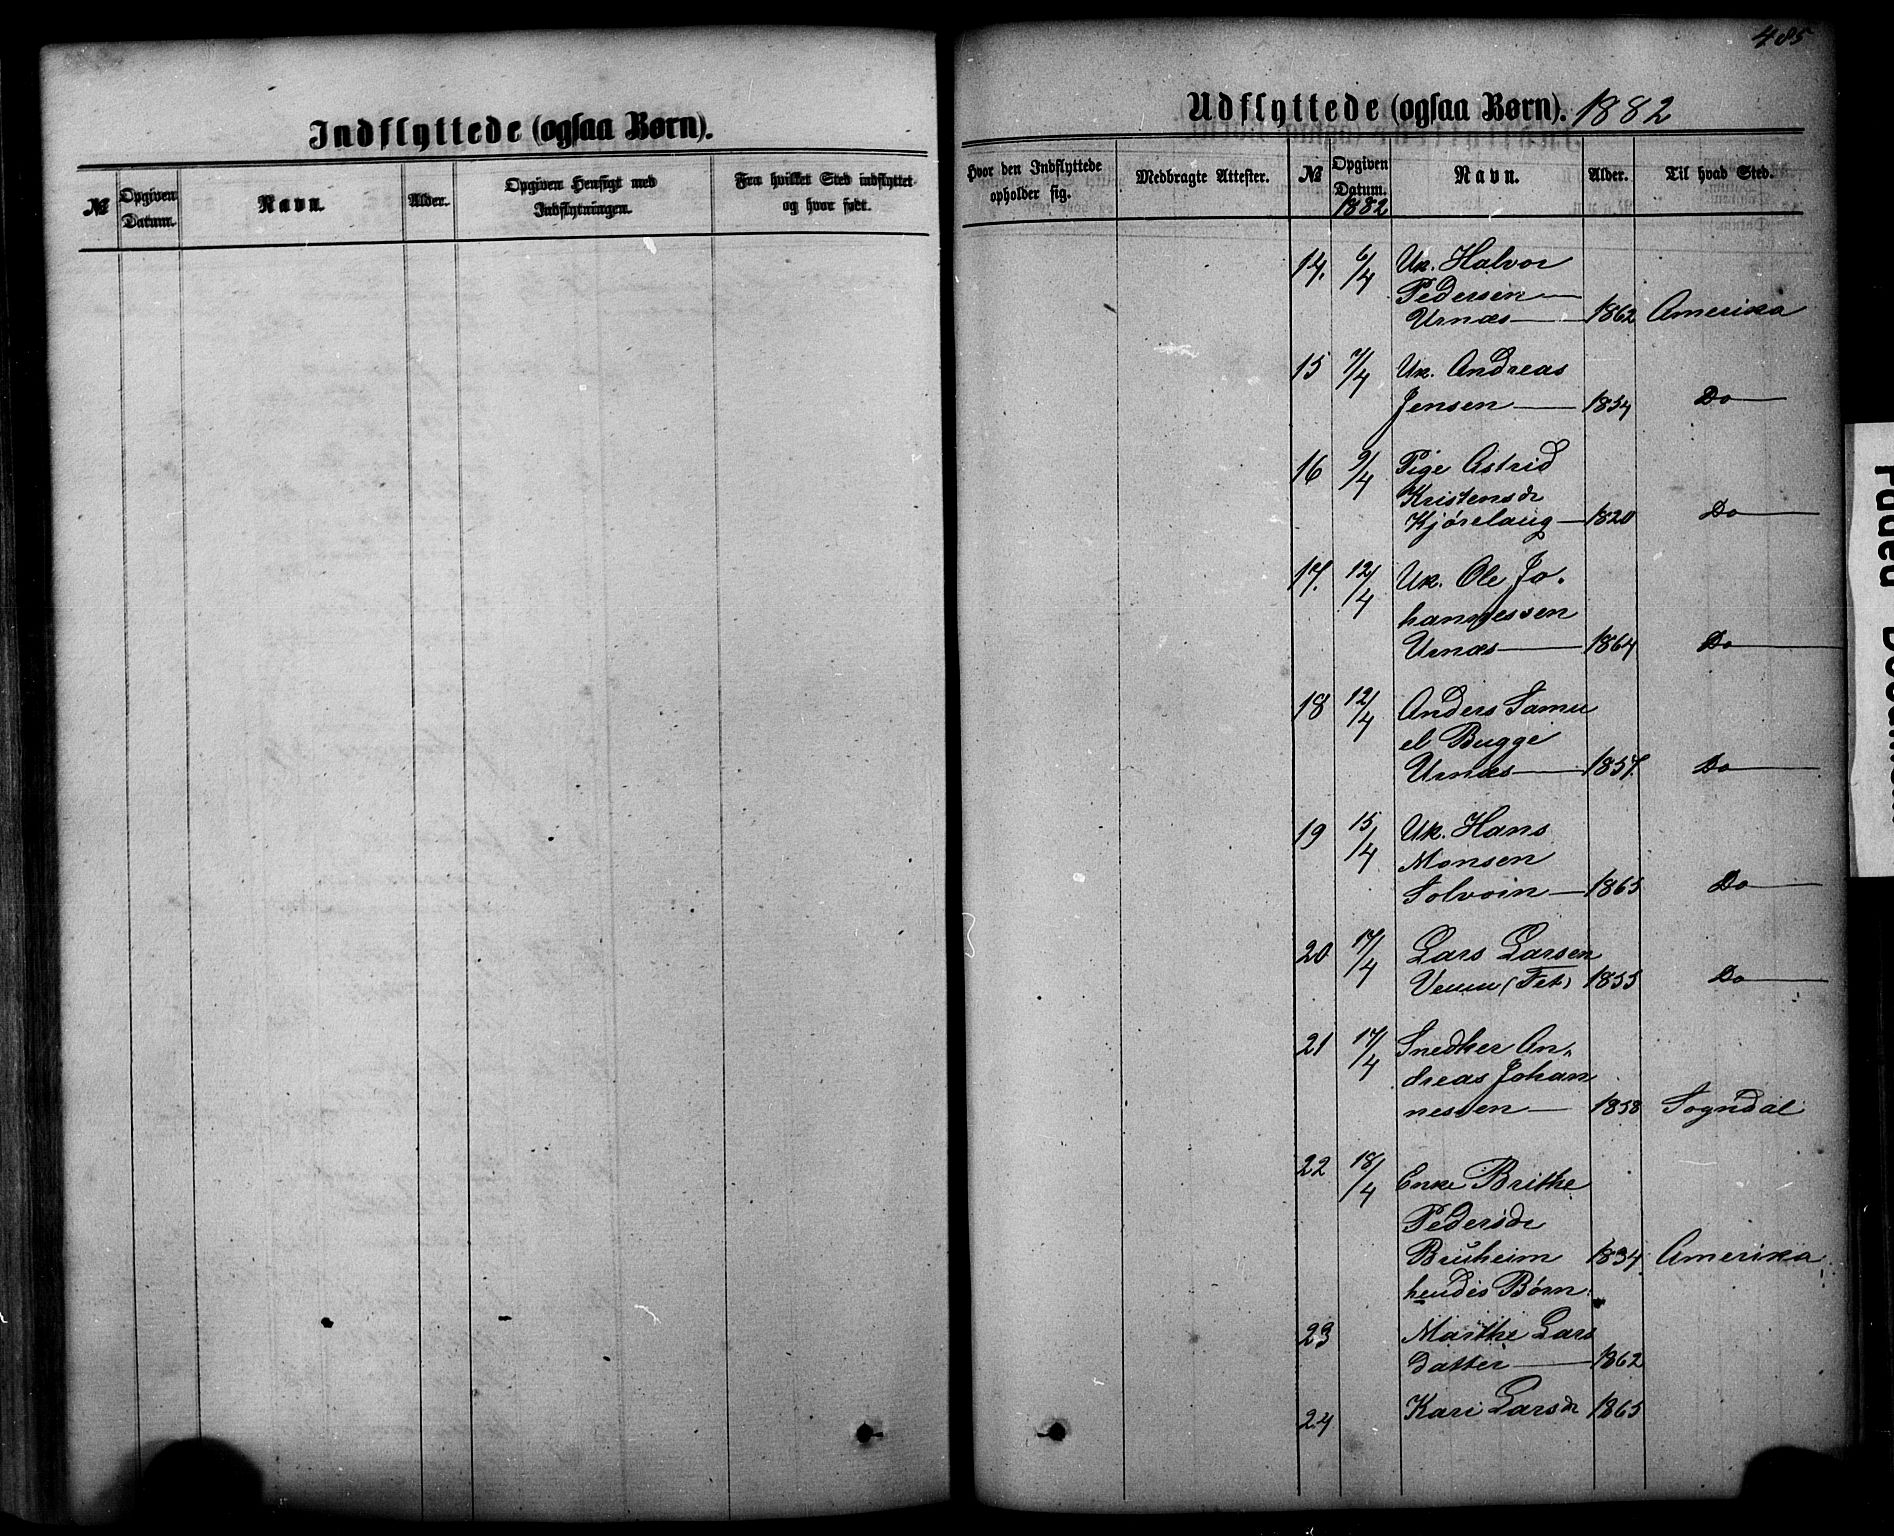 Indflyttede (ogsaa Børn).
№ Opgiven Datum. Navn. Alder. Opgiven Hensigt med Indflytningen. Fra hvilket Sted indflyttet og hvor født.
485
Udflyttede (ogsaa Børn). 1882
Hvor den Indflyttede opholder sig. Medbragte Attester. № Opgiven Datum. Navn. Alder. Til hvad Sted.
1882
14. 6/4 Uk. Halvor
Pedersen
Urnæs 1862 Amerika
15 7/4 Uk. Andreas
Jensen 1854 Do
16 9/4 Pige Astrid
Kristensdr
Kjørelaug 1820 Do
17. 12/4 Uk. Ole Jo-
hannessen
Urnæs 1864 Do
18 12/4 Anders Samu
el Bugge
Urnæs 1857. Do
19 15/4 Uk. Hans
Monsen
Solvoin 1865 Do
20 17/4 Lars Larsen
(Fet) 1855 Do
21 17/4 Snedker An-
dreas Johan
nessen 1858 Sogndal
22 18/4 Enke Brithe
Pedersdr
Bruheim 1834 Amerika
hendes Børn:
23 Marthe Lars
datter 1862
24 Kari Larsdr 1865
Faded Document